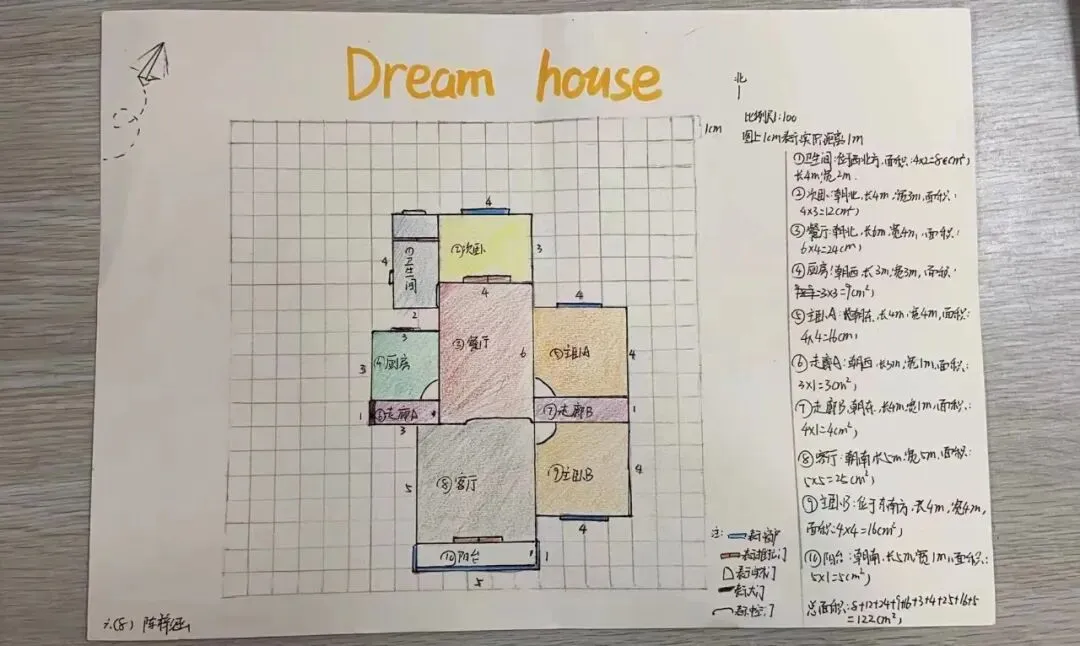 Dream house
北
比例尺1:100
图上1cm表示实际距离1m
1cm
①卫生间:位于西北方,面积:4x2=8(cm²,
长4m,宽2m.
②次卧:朝北,长4m,宽3m,面积:
4x3=12cm²,
③餐厅:朝北,长6m,宽4m,面积:
6x4=24cm,
④厨房:朝西,长3m,宽3m,面积:
3x3=9cm²,
⑤主卧A:朝东,长4m,宽4m,面积:
4x4=16cm,
⑥走廊A:朝西,长3m,宽1m,面积:
3x1=3cm²,
⑦走廊B:朝东,长4m,宽1m,面积:
4x1=4cm²,
⑧客厅:朝南,长5m,宽5m,面积:
5x5=25cm²,
⑨主卧B:位于东南方,长4m,宽4m,
面积:4x4=16cm²,
⑩阳台:朝南,长5m,宽1m,面积:
5x1=5cm²,
总面积:8+12+24+9+16+3+4+25+16+5
=122cm²,
4
4
①卫生间
2
②次卧
3
4
③餐厅
6
3
3
④厨房
4
⑤主卧A
4
1
⑥走廊A
3
⑦走廊B
1
5
⑧客厅
⑨主卧B
4
4
⑩阳台
1
5
注:
表示窗户
表示推拉门
表示大门
六(8)